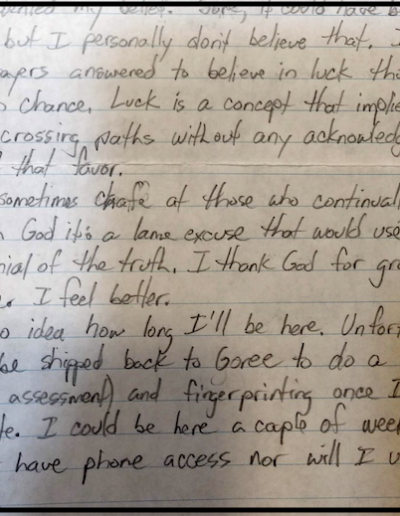 my belief. Sure, it could have b
but I personally don't believe that. I
ayers answered to believe in luck tho
chance. Luck is a concept that implie
crossing paths without any acknowledg
that favor.
sometimes chafe at those who continual
God it's a lame excuse that would use
nial of the truth. I thank God for gr
I feel better.
o idea how long I'll be here. Unfor
be shipped back to Goree to do a
assessment) and fingerprinting once I
te. I could be here a cople of week
have phone access nor will I u